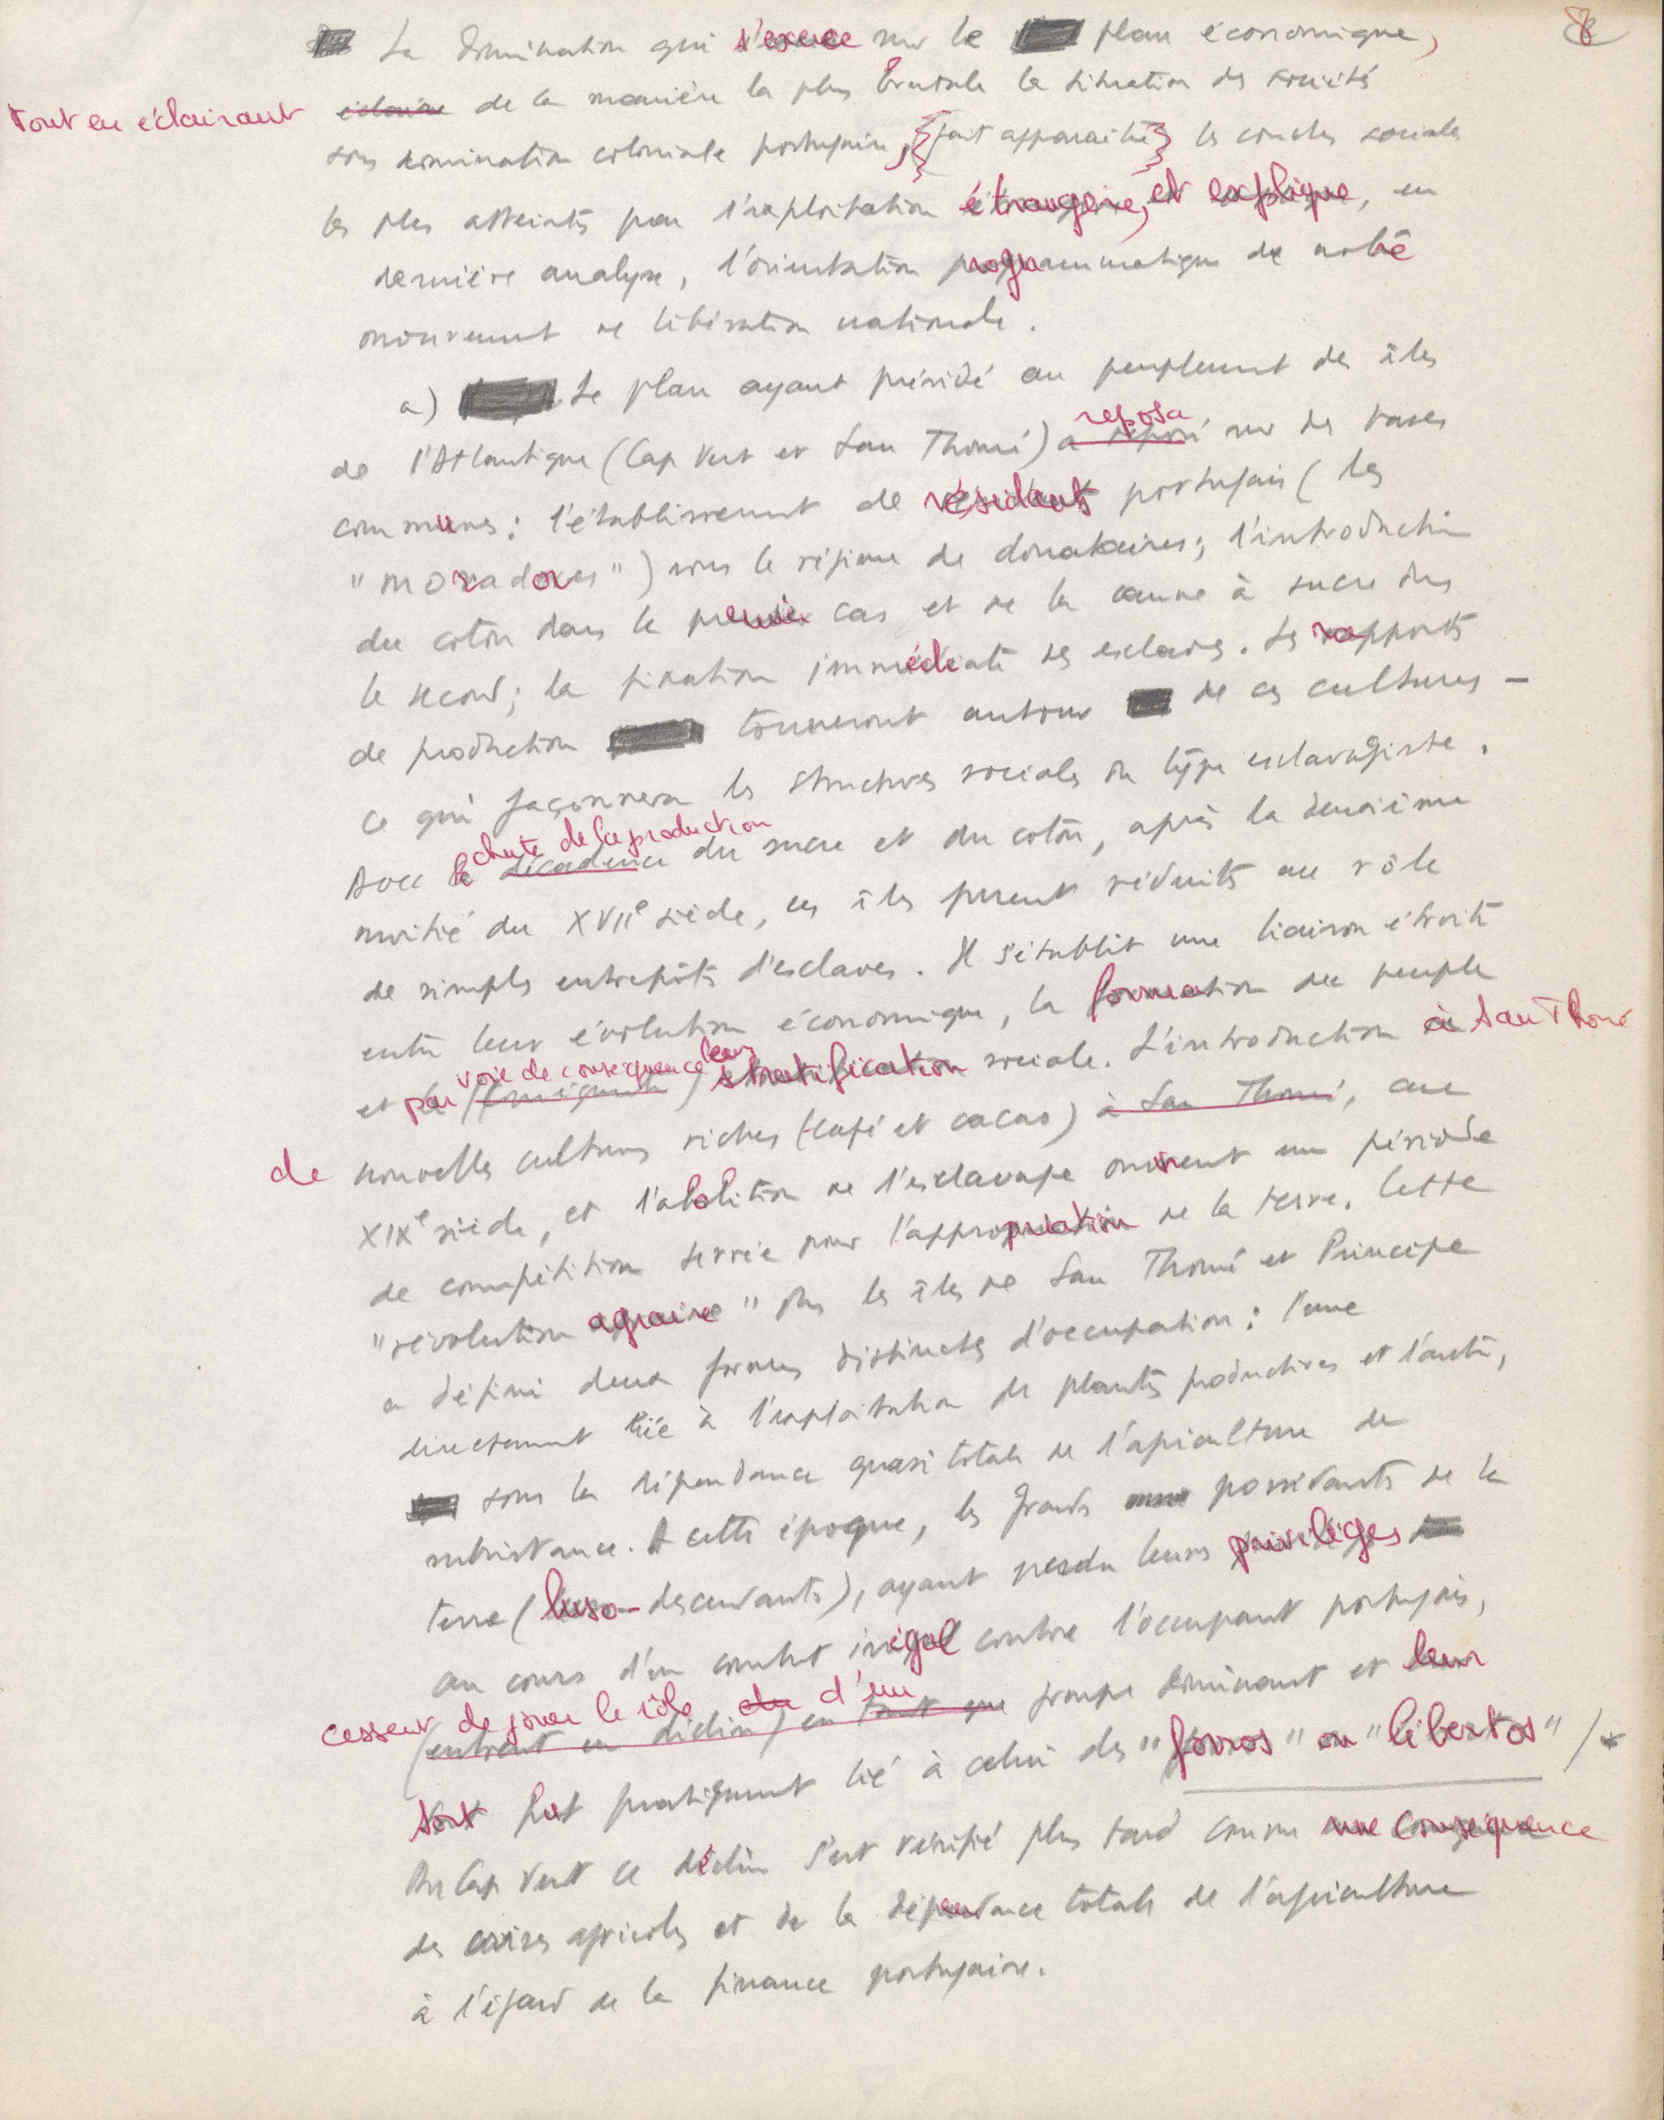 8
La domination qui s'exerce sur le plan économique,
Tout en éclairant éclaire de la manière la plus brutale la situation des sociétés
sous domination coloniale portugaise, {fait apparaître} les couches sociales
les plus atteintes par l'exploitation étrangère, et explique, en
dernière analyse, l'orientation programmatique de notre
mouvement de libération nationale.
a) Le plan ayant présidé au peuplement des îles
reposa
de l'Atlantique (Cap Vert et San Thomé) a reposé sur des bases
communes : l'établissement de résidants portugais (les
"moradores") sous le régime de donataires ; l'introduction
du coton dans le premier cas et de la canne à sucre dans
le second ; la fixation immédiate des esclaves. Les rapports
de production tourneront autour de ces cultures -
ce qui façonnera les structures sociales du type esclavagiste.
chute de la production
Avec la décadence du sucre et du coton, après la deuxième
moitié du XVIIe siècle, ces îles furent réduits au rôle
de simples entrepôts d'esclaves. Il s'établit une liaison étroite
entre leur évolution économique, la formation du peuple
voie de conséquence leur
et par (conséquente) stratification sociale. L'introduction à San Thomé
de nouvelles cultures riches (café et cacao) à San Thomé, au
XIXe siècle, et l'abolition de l'esclavage ouvrent une période
de compétition serrée pour l'appropriation de la terre. Cette
"révolution agraire" dans les îles de San Thomé et Principe
a défini deux formes distinctes d'occupation : l'une
directement liée à l'exploitation de plantes productives et l'autre,
sous la dépendance quasi totale de l'agriculture de
subsistance. A cette époque, les grands possédants de la
terre (luso-descendants), ayant perdu leurs privilèges
au cours d'un combat inégal contre l'occupant portugais,
cessent de jouer le rôle du d'un
(entrent en déclin) en tant que groupe dominant et leur
sort fut pratiquement lié à celui des "forros" ou "libertos" /*
Au Cap Vert ce déclin s'est vérifié plus tard comme une conséquence
des crises agricoles et de la dépendance totale de l'agriculture
à l'égard de la finance portugaise.